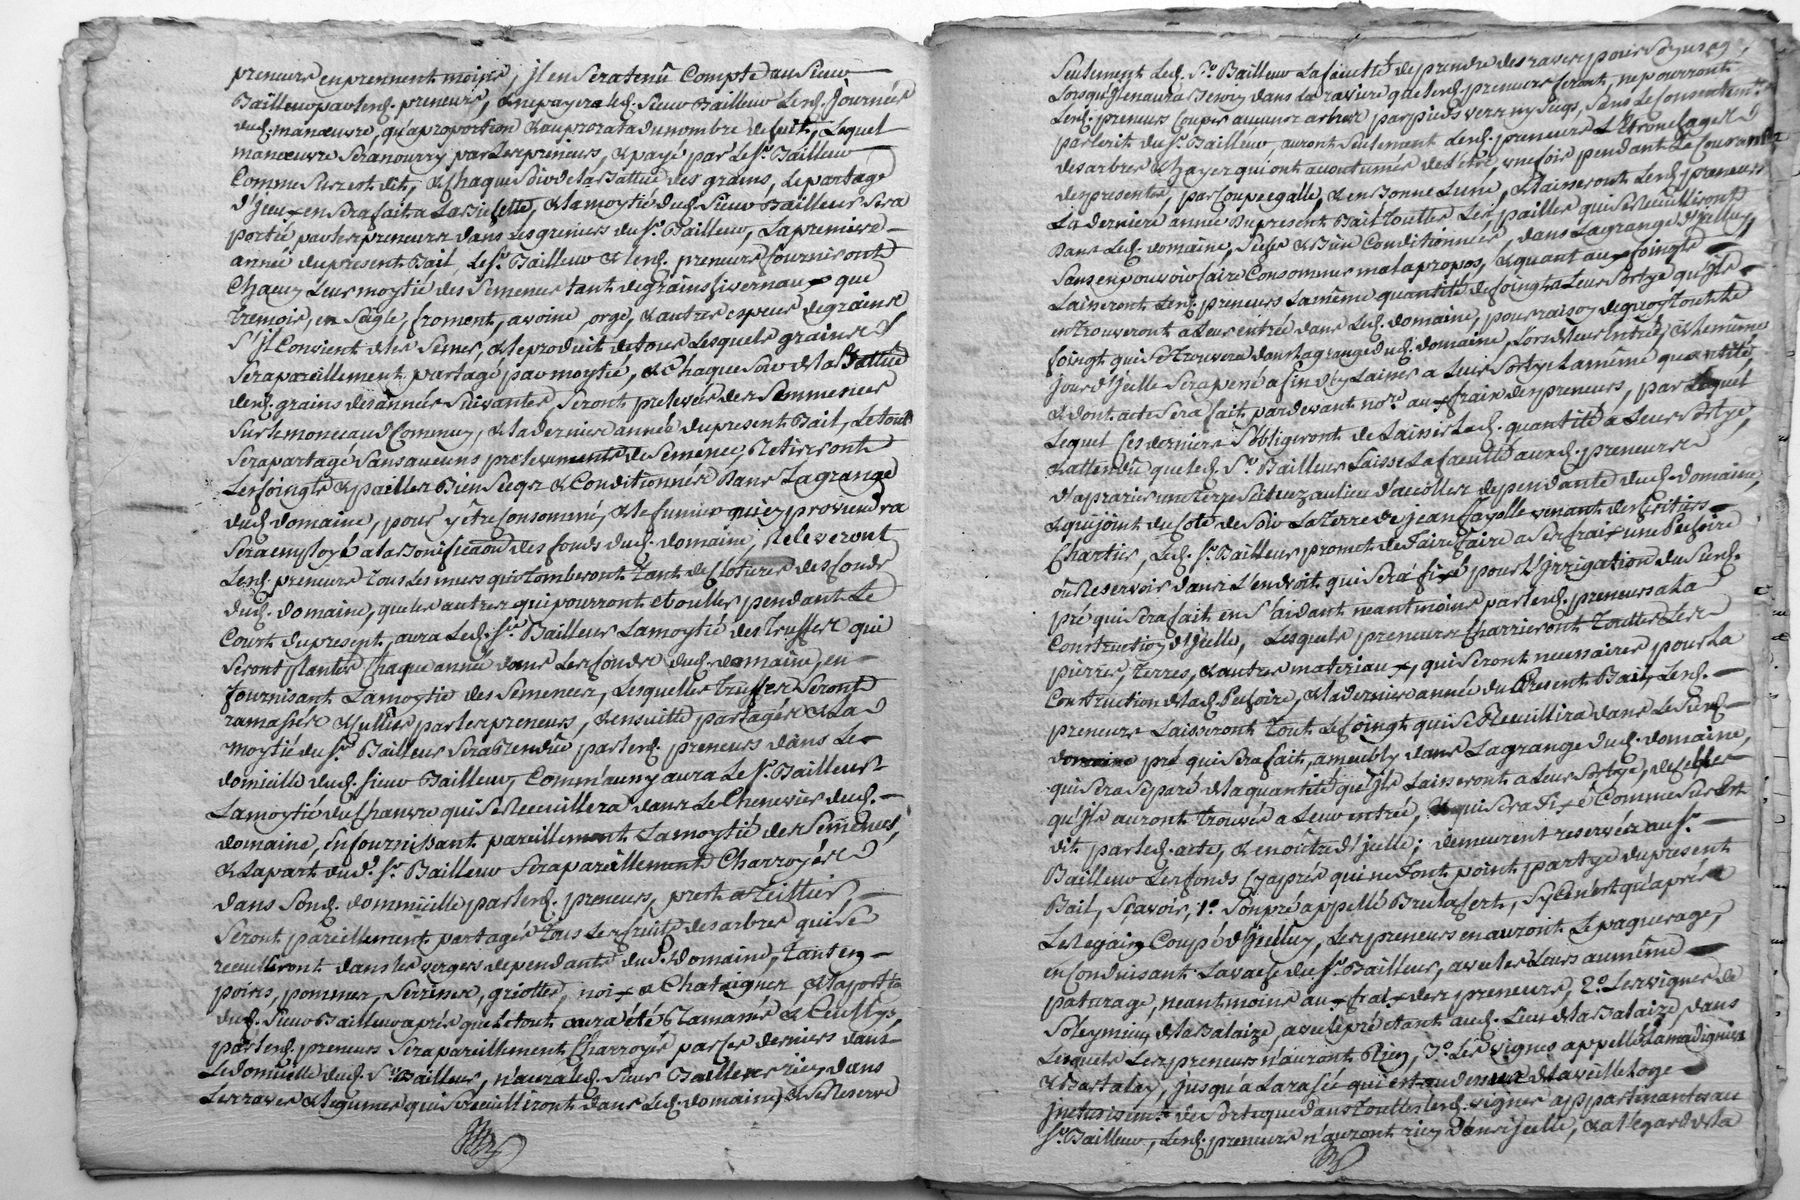 preneurs en prennent moins, jl en sera tenû Compte au Sieur
Bailleur par lesd. preneurs, & ne payera led. Sieur Bailleur lesd. Journées
dud. manœuvre, qu'a proportion & au prorata du nombre de huit, Lequel
manœuvre Sera nourry par les preneurs, & payé par Le Sr. Bailleur
Comme Sus est dit, & chaque Soir de la Battue des grains, le partage
d'jceux en Sera fait a La Bichette, & la moytié dud. Sieur Bailleur Sera
portée par les preneurs dans Les greniers du Sr. Bailleur, La premiere
année du present Bail, Le Sr. Bailleur & lesd. preneurs fourniront
Chacun Leur moytié des Semences tant de grains hivernaux que
tremois, en Seigle, froment, avoine, orge, & autres especes de grains
S'jl Convient de les Semer, & le produit de tous Lesquels grains
Sera pareillement partagé par moytié, & Chaque Soir de la Battue
desd. grains des années Suivantes, Seront prelevés des Semmences
Sur le monceau Commun, & la derniere année du present Bail, Le tout
Sera partagé Sans aucuns prelevements de Semence, Retireront
Les foingts & pailles Bien Seiges & Conditionnées Dans La grange
dud. domaine, pour y être Consommés, & le fumier qui en proviendra
Sera employé a la Bonificaon des fonds dud. domaine, Releveront
Lesd. preneurs tous Les murs qui tomberont tant de Clotures des fonds
dud. domaine, que les autres qui pourront ebouller pendant Le
Court du present, aura Led. Sr. Bailleur La moytié des truffes qui
Seront plantés Chaque année dans Les fonds dud. domaine, en
fournissant La moytié des Semences, Lesquelles truffes Seront
ramassées & Cullies par les preneurs, & ensuitte partagées & La
moytié du Sr. Bailleur Sera Rendue par lesd. preneurs dans Le
domicille dud. Sieur Bailleur, Comm'aussy aura Le Sr. Bailleur
La moytié du Chanvre qui Se Receuillera dans Le Chenevier dud.
domaine, En fournissant pareillement La moytié des Semences,
& La part dud. Sr. Bailleur Sera pareillement Charroyée
dans Sond. dommicille par lesd. preneurs, prest a teillier,
Seront pareillement partagés tous Les fruits des arbres qui se
receuilleront dans les vergers dependants dud. Domaine, tant en
poires, pommes, Serrises, griottes, noix & Chataignes, & la portion
dud. Sieur Bailleur après que Le tout aura été Ramassé & Cuillys,
par lesd. preneurs Sera pareillement Charroyée par ces derniers dans
Le domicille dud. Sr. Bailleur, n'aura led. Sieur Bailleur rien dans
Les raves & legumes qui Se receuilliront dans Led. domaine, & se Reserve
Seulement Led. Sr. Bailleur La faculté de prendre des raves pour Son usage,
Lorsqu'jl en aura Besoin dans La raviere que lesd. preneurs feront, ne pourront
Lesd. preneurs Couper aucuns arbres par pieds vers ny Secqs, Sans Le Consentement
par Ecrit du Sr. Bailleur, auront Seulement Lesd. preneurs L'Etronchage
des arbres & hayes qui ont accoutumés de l'être, une fois pendant Le Cour
des presentes, par Coupe egalle, & en Bonne Lune, & Laisseront Lesd. preneurs
La derniere année Du present Bail toutes Les pailles qui Se Receuilliront
Dans Led. domaine, Seiches & Bien Conditionnées, dans La grange d'jcelluy,
Sans en pouvoir faire Consommer mal a propos, & quant aux foingts
Laisseront Lesd. preneurs La même quantité de foingt a Leur Sortye qu'jls
en trouveront a Leur entrée dans Led. domaine, pour raison de quoy tout Le
foingt qui Se trouvera dans La grange dud. domaine, Lors de Leur Entrée, & le même
Jour d'jcelle Sera pesé afin d'en Laisser a Leur Sortye La même quantité,
& dont acte Sera fait pardevant nore. aux frais des preneurs, par Lequel
Lequel ces derniers S'obligeront de Laisser Lad. quantité a Leur Sortye,
& attendû que led. Sr. Bailleur Laisse La faculté auxd. preneurs
d'aprarier une terre Scituez au lieu d'accoller dependante dud. domaine,
& qui joint du Coté de Soir La terre de jean fayolle venant des heritiers
Chartier, Led. Sr. Bailleur promet de faire faire a Ses frais une Pechoire
ou Reservoir dans L'endroit qui Sera fixé pour L'jrrigation du Susd.
pré qui Sera fait en S'aidant neantmoins par lesd. preneurs a La
Construction d'jcelle, Lesquels preneurs Charrieront touttes Les
pierres, terres, & autres materiaux, qui Seront necessaires pour La
Construction de lad. Pechoire, & la derniere année du Present Bail, Lesd.
preneurs Laisseront tout Le foingt qui Se Receuillira dans Le Susd.
domaine pré qui Sera fait, ameubly dans La grange dud. domaine,
qui Sera Séparé de la quantité qu'jls Laisseront a Leur Sortye, de celle
qu'jls auront trouvée a Leur entrée, & qui Sera fixée Comme Sus Est
dit par led. acte, & en outre d'jcelle; demeurent reservés au Sr.
Bailleur Les fonds Cy aprés qui ne font point partye du present
Bail, Sçavoir, 1o. Son pré appellé Breulafert, Sy Ce n'est qu'aprés
Le Regain Coupé d'jcelluy, Les preneurs en auront Le paquerage,
en Conduisant La vache du Sr. Bailleur, avec les Leurs au même
paturage, neantmoins aux fraix des preneurs, 2o. Les vignes de
Soleymieu & de la Balaize, avec le pré etant aud. Lieu de la Balaize, dans
Lesquels Les preneurs n'auront Rien, 3o. Les vignes appellés Lamadignier
& Bastalay, jusqu'a La rasée qui est au dessus de la vieille loge
jnclusivement de Sorte que dans touttes lesd. vignes appartenantes au
Sr. Bailleur, Lesd. preneurs n'auront rien dans jcelle, & a l'egard de la